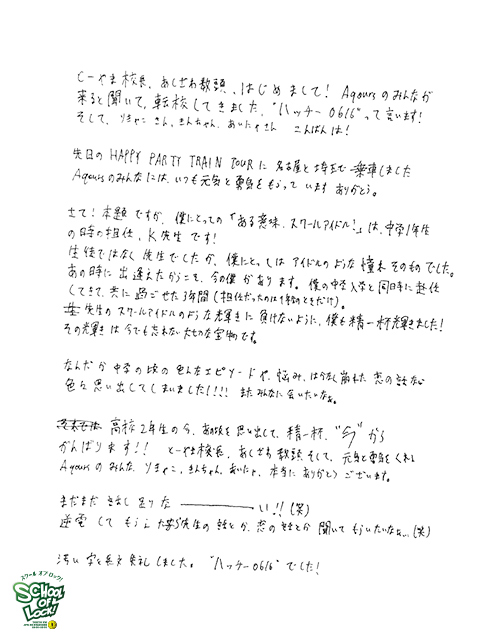 とーやま校長、あしざわ教頭、はじめまして! Aqoursのみんなが
来ると聞いて、転校してきました、"ハッチー0616"って言います!
そして、りきゃこさん、きんちゃん、あいにゃさん こんばんは!
先日の HAPPY PARTY TRAIN TOURに名古屋と埼玉で乗車しました
Aqoursのみんなには、いつも元気と勇気をもらっています ありがとう。
さて!本題ですが、僕にとっての「ある意味、スクールアイドル!」は、中学1年生
の時の担任、K先生です!
生徒ではなく先生でしたが、僕にとってはアイドルのような憧れそのものでした。
あの時に出逢えたからこそ、今の僕があります。僕の中学入学と同時に赴任
してきて、共に過ごせた3年間(担任だったのは1年のときだけ)。
先生のスクールアイドルのような輝きに負けないように、僕も精一杯輝きました!
その輝きは今でも忘れない大切な宝物です。
なんだか中学の頃の色んなエピソードや、悩み、はかなく崩れた恋の話など
色々思い出してしまいました!!! またみんなに会いたいなぁ。
高校2年生の今、あの頃を思い出して、精一杯、"今"から
がんばります!! とーやま校長、あしざわ教頭そして、元気と勇気をくれる
Aqoursのみんな、りきゃこ、きんちゃん、あいにゃ、本当にありがとうございます。
まだまだ 話し足りな―――い!!(笑)
逆電してもらえたらK先生の話とか、恋の話とか聞いてもらいたいなぁ…(笑)
汚い字と長文失礼しました。 "ハッチー0616"でした!
スクール オブ ロック!
SCHOOL OF LOCK!